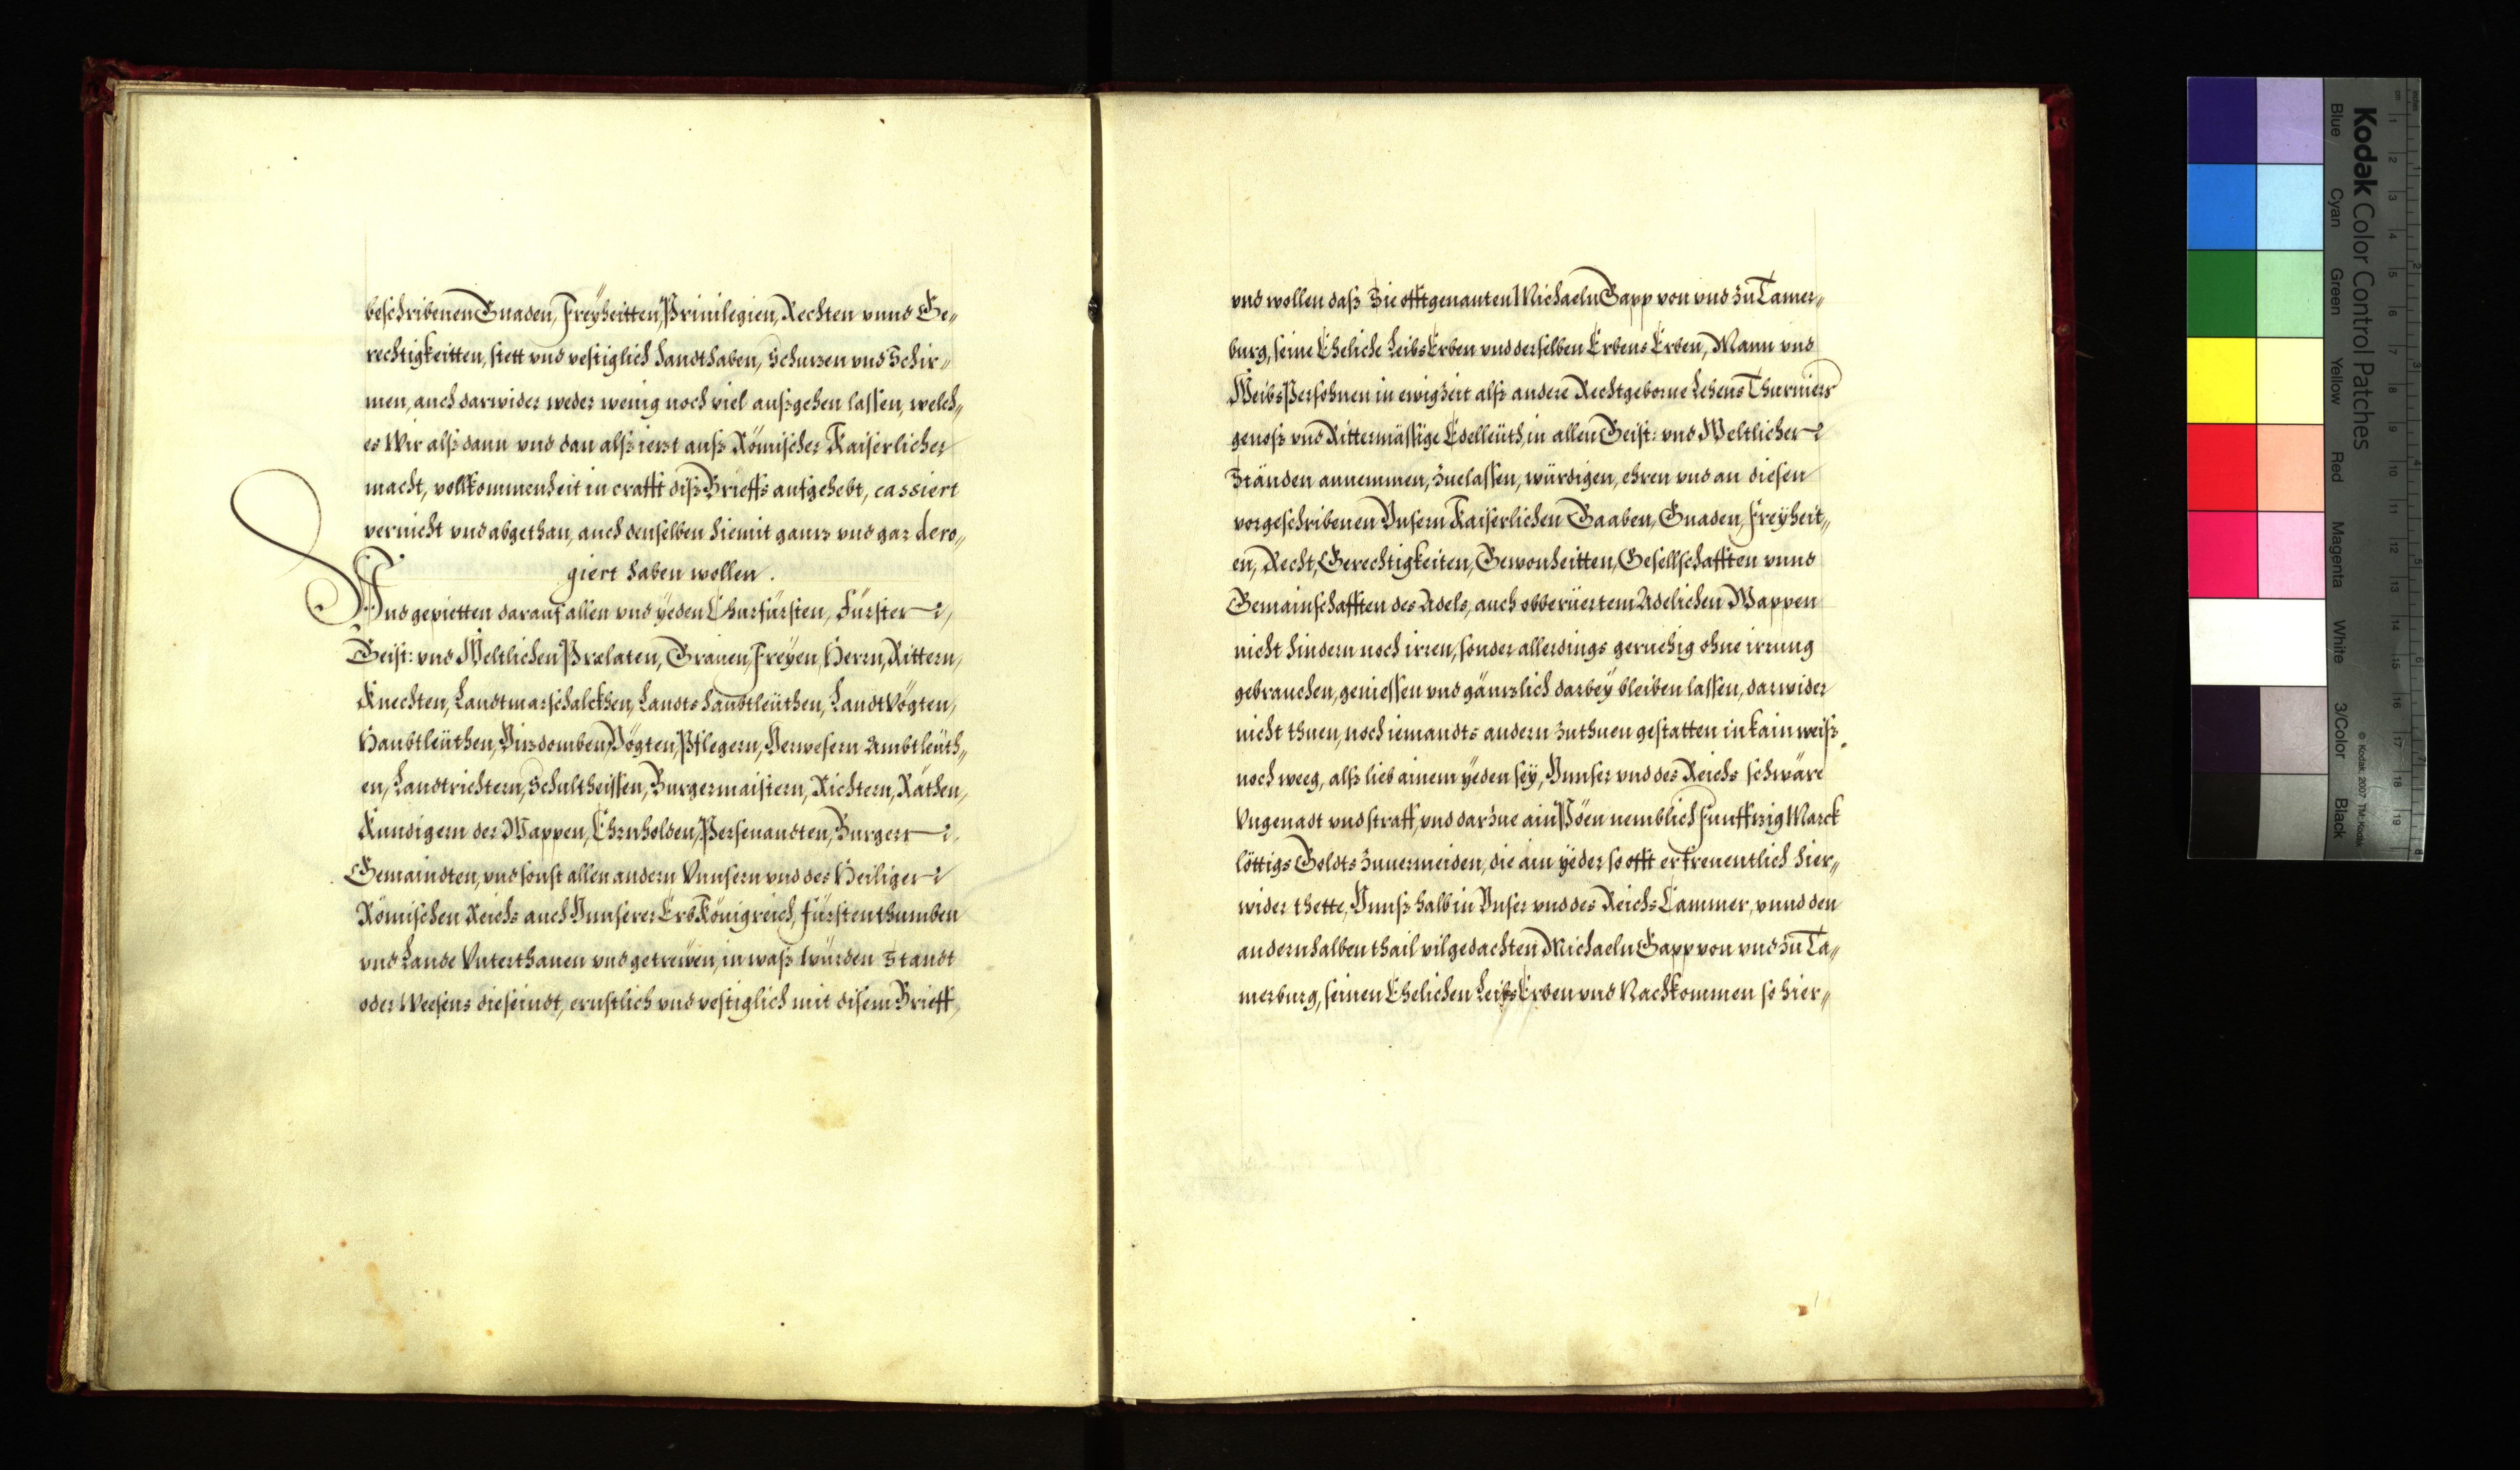 beschribenen Gnaden, Freÿheitten, Priuilegien, Rechten vnnd Ge„
rechtigkeitten, stett vnd vestiglich handthaben, Schuzen vnd Schir„
men, auch darwider weder wenig noch viel außgehen lassen, welch„
es Wir alß dann vnd dan alß iezt auß Römischer Kaiserlicher
macht, vollkommenheit in crafft diß Brieffs aufgehebt, cassiert
vernicht vnd abgethan, auch denselben hiemit ganz vnd gar dero„
giert haben wollen.
Vnd gepietten darauf allen vnd ÿeden Churfürsten, Fürsten,
Geist: vnd Weltlichen Prælaten, Grauen, Freÿen, Herrn, Rittern,
Knechten, Landtmarschalckhen, Landtshaubtleüthen, LandtVögten,
Haubtleüthen, Vizdomben, Vögten, Pflegern, Verwesern Ambtleüth„
en, Landtrichtern, Schultheissen, Burgermaistern, Richtern, Räthen,
Kundigern der Wappen, Ehrnholden, Persenandten, Burgern,
Gemaindten, vnd sonst allen andern Vnnsern vnd des Heiligen
Römischen Reichs auch Vnnserer ErbKönigreich, Fürstenthumben
vnd Lande Vnterthanen vnd getrewen, in waß würden Standt
oder Weesens die seindt, ernstlich vnd vestiglich mit disem Brieff,
vnd wollen daß Sie offtgenanten Michaeln Gapp von vnd zu Tamer„
burg, seine Eheliche LeibsErben vnd derselben Erbens Erben, Mann vnd
WeibsPersohnen in ewig Zeit alß andere Rechtgeborne Lehens Thurniers
genoß vnd Rittermässige Edelleüth, in allen Geist: vnd Weltlichen
Ständen annemmen, Zuelassen, würdigen, ehren vnd an diesen
vorgeschribenen Vnsern Kaiserlichen Gaaben, Gnaden, Freÿheit„
en, Recht, Gerechtigkeiten, Gewonheitten, Gesellschafften vnnd
Gemainschafften des Adels, auch obberüertem Adelichen Wappen
nicht hindern noch irren, sonder allerdings geruehig ohne irrung
gebrauchen, geniessen vnd gänzlich darbeÿ bleiben lassen, darwider
nicht thuen, noch iemandts andern zuthuen gestatten in kain weiß
noch weeg, alß lieb ainem ÿeden seÿ, Vnnser vnd des Reichs schwäre
Vngenadt vnd straff, vnd darZue ain Pöen nemblich Funffzig Marck
löttigs Goldts Zuuermeiden, die ain ÿeder so offt er freuentlich hier„
wider thette, Vnnß halb in Vnser vnd des Reichs Cammer, vnnd den
andern halben thail vilgedachten Michaeln Gapp von vnd zu Ta„
merburg, seinen Ehelichen LeibsErben vnd Nachkommen so hier„
Kodak Color Control Patches
Blue Cyan Green Yellow Red Magenta White 3/Color Black
© Kodak, 2007 TM: Kodak